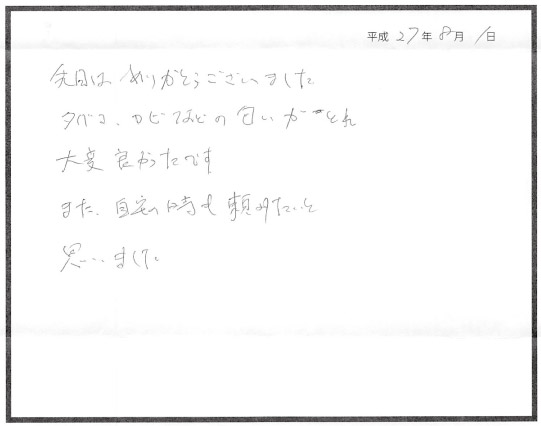 平成 27年 8月 1日
先日は ありがとうございました
タバコ、カビなどの匂いがとれ
大変良かったです
また、自宅の時も頼みたいと
思いました。